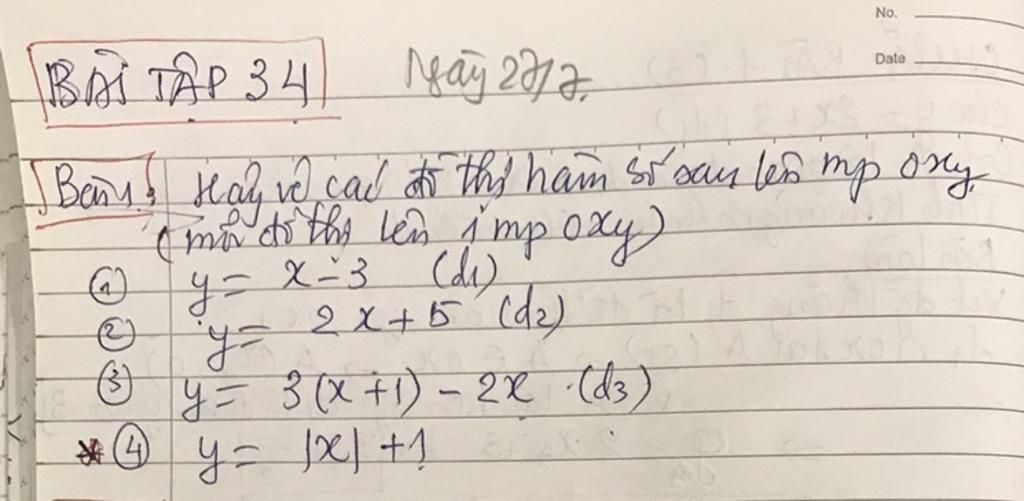 No.
BÀI TẬP 34 Ngày 27/7.
Date
Bài 1: Hãy vẽ các đồ thị hàm số sau lên mp Oxy.
(mỗi đồ thị lên 1 mp Oxy)
① y = x - 3 (d1)
② y = 2x + 5 (d2)
③ y = 3(x + 1) - 2x (d3)
* ④ y = |x| + 1